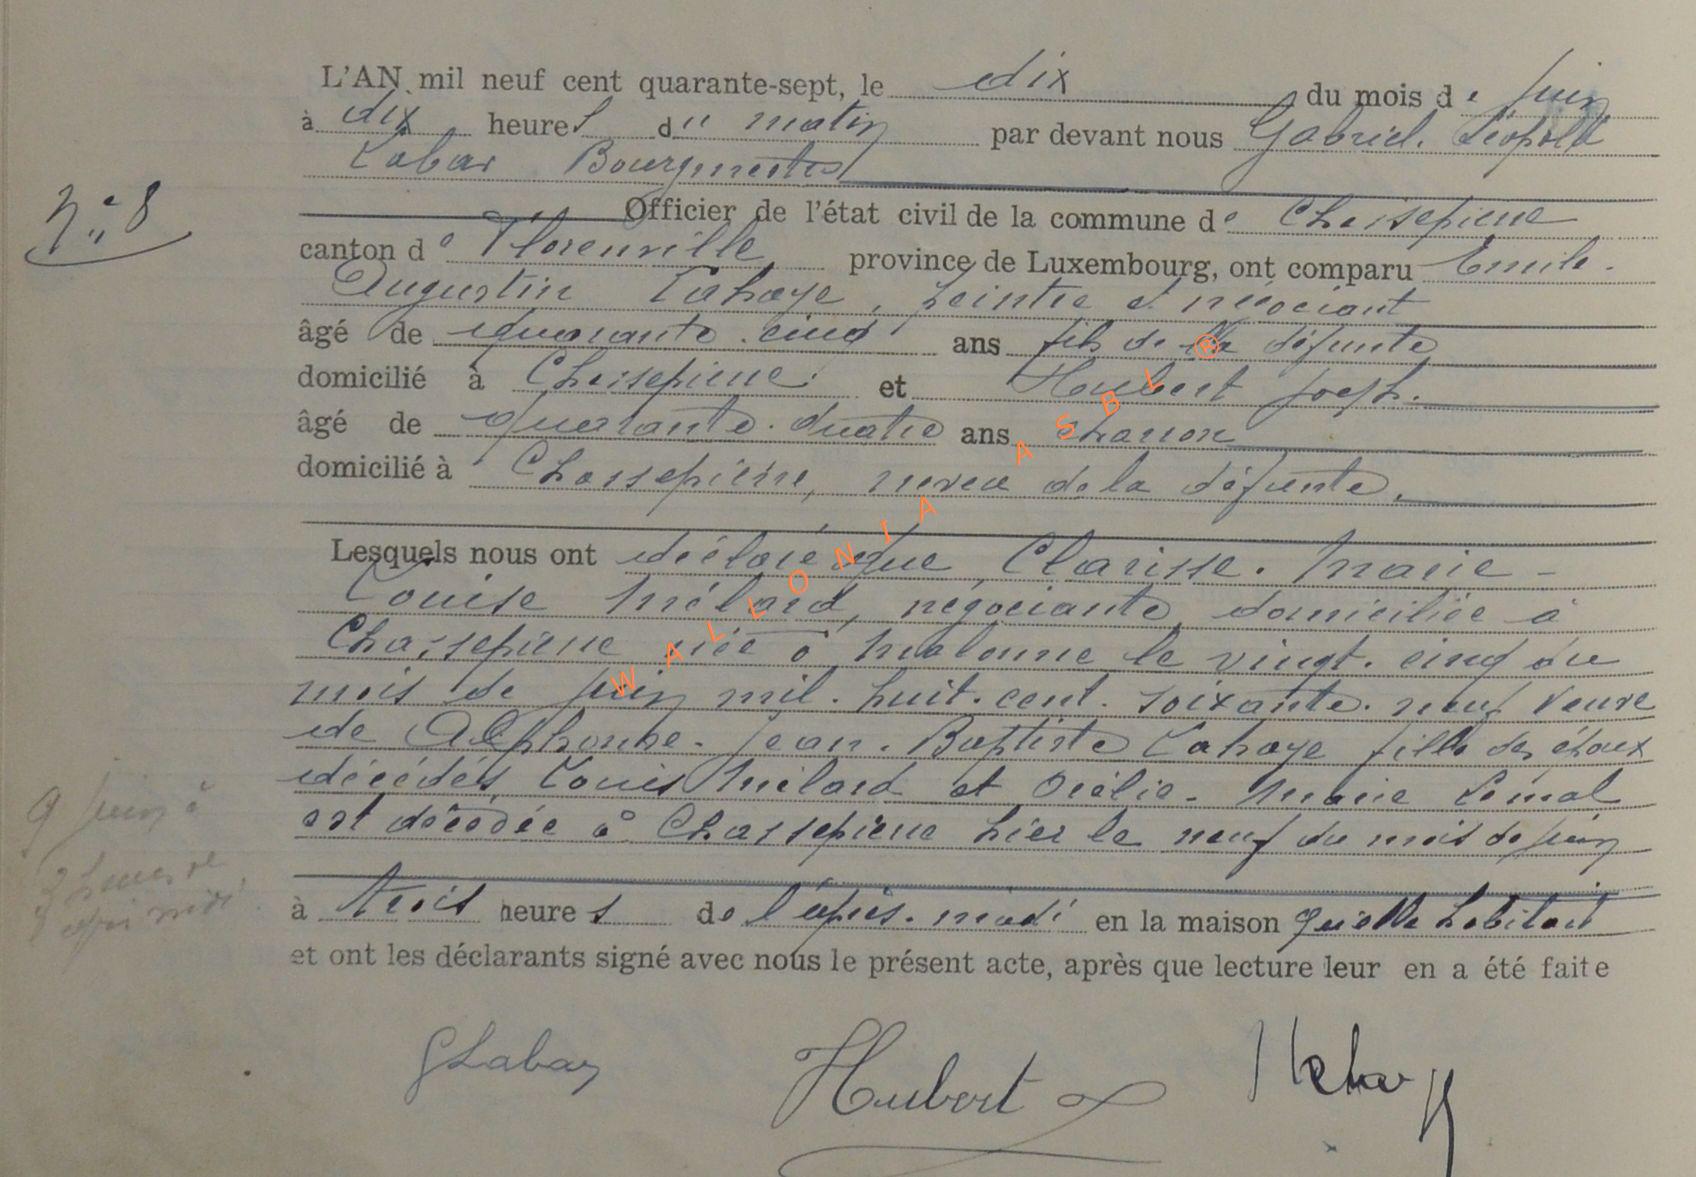 L'AN mil neuf cent quarante-sept, le dix du mois de juin
à dix heures du matin par devant nous Gabriel. Léopold
Labar Bourgmestre
N° 8
Officier de l'état civil de la commune de Chassepierre
canton de Florenville province de Luxembourg, ont comparu Emile.
Augustin Lahaye, peintre et négociant
âgé de quarante. cinq ans fils de la défunte
domicilié à Chassepierre et Hubert Joseph.
âgé de quarante. quatre ans charron
domicilié à Chassepierre, neveu de la défunte.
Lesquels nous ont déclaré que Clarisse. Marie-
Louise Mélard, négociante domiciliée à
Chassepierre née à Malonne le vingt. cinq du
mois de juin mil. huit. cent. soixante. neuf veuve
de Alphonse. Jean. Baptiste Lahaye fille des époux
décédés, Louis Mélard et Marie
est décédée à Chassepierre hier le neuf du mois de juin
9 juin à
3 heures de
l'après midi
à trois heures de l'après. midi en la maison qu'elle habitait
et ont les déclarants signé avec nous le présent acte, après que lecture leur en a été faite
GLabar Hubert Lahaye
WALLONIA ASBL ®